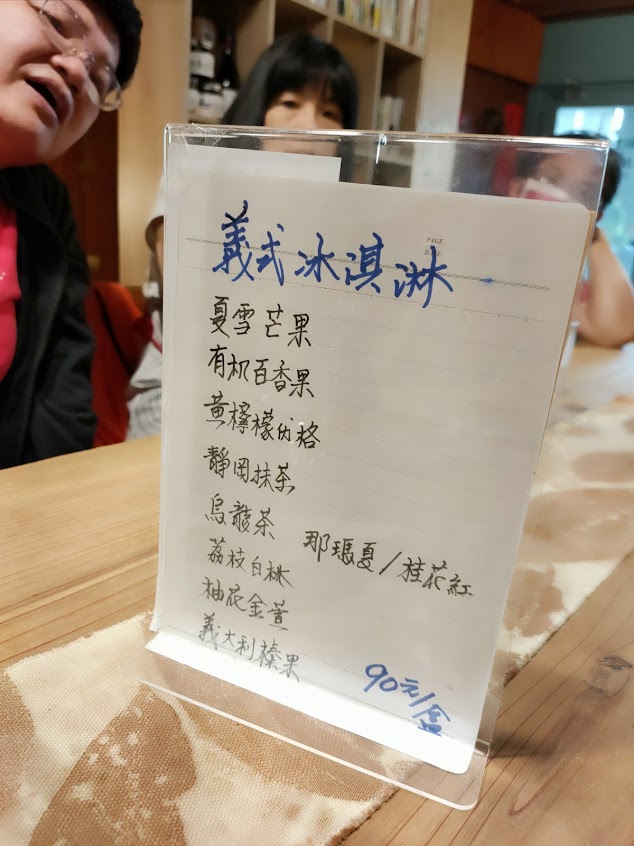 PAGE
DATE
義式冰淇淋
夏雪芒果
有机百香果
黃檸檬优格
靜岡抹茶
烏龍茶 那瑪夏/桂花紅
荔枝白林
柚花金萱
義大利榛果
90元/盒